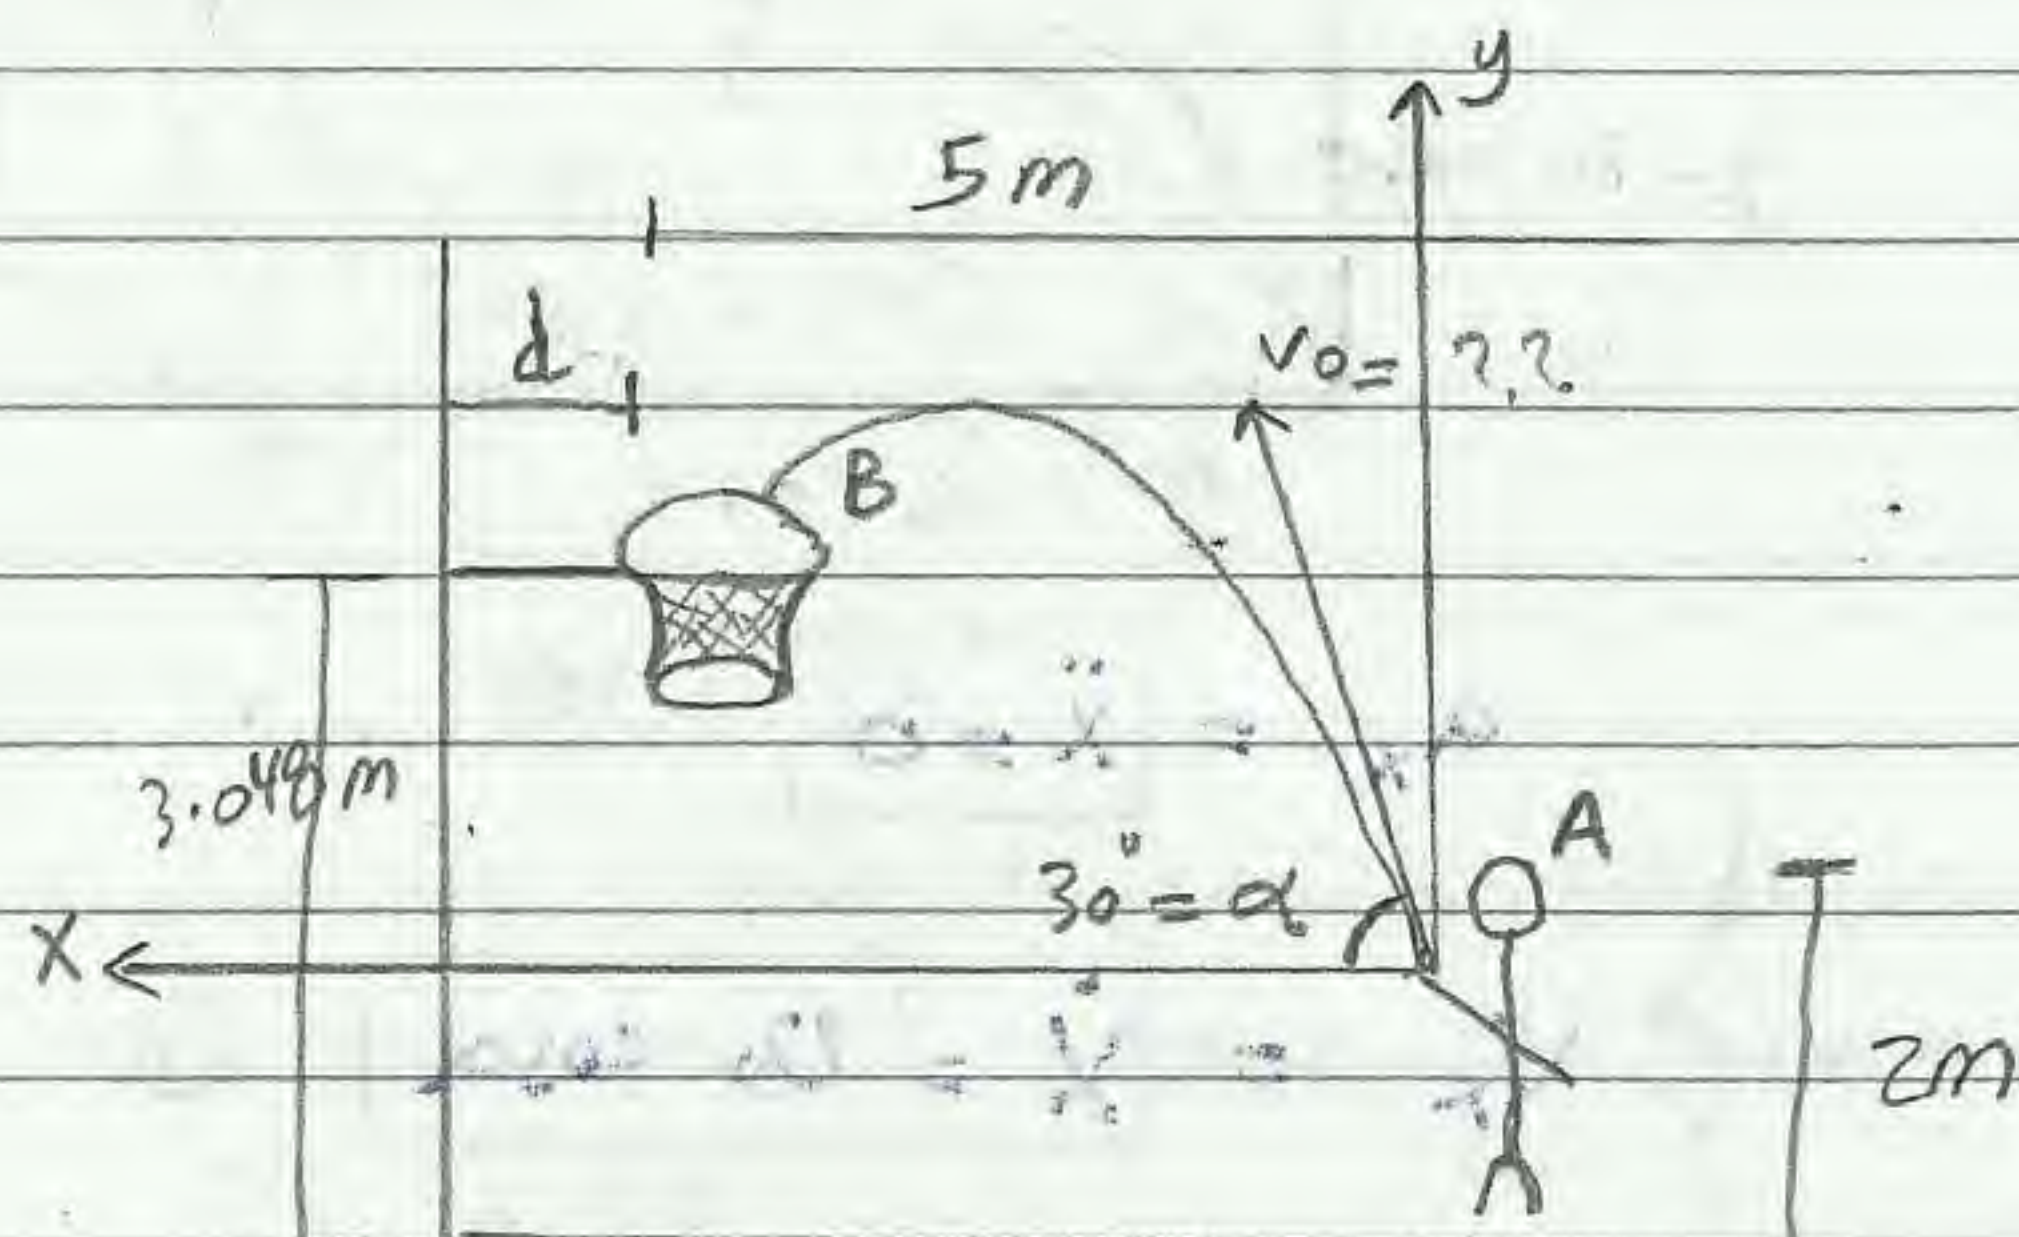 y
5 m
d
vo= ??
B
3.048 m
A
30° = α
X
2m